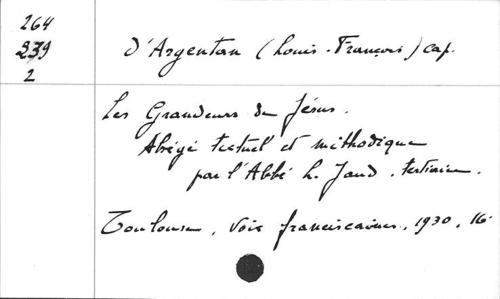 264
239
2
D'Argentan (Louis-François) cap.
Les Grandeurs de Jésus.
Abrégé textuel et méthodique
par l'Abbé L. Jaud, tertiaire.
Toulouse, Voix franciscaines, 1930, 16